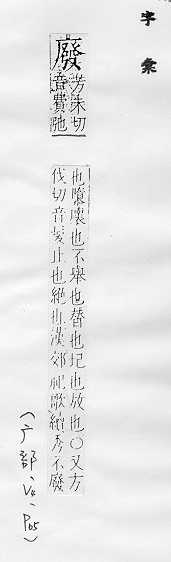 字彙
廢
芳未切
音費弛
也隳壞也不舉也替也圮也放也○又方
伐切音髮止也絕也漢郊祀歌續秀不廢
（广部、V4、P65）